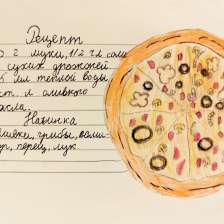 Рецепт
г муки, 1/2 ч.л соли
сухих дрожжей
мл теплой воды
ст. л оливкого
масла.
Начинка
грибы,
перец, лук